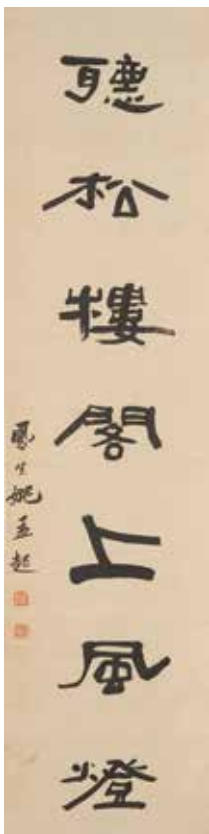 聽松樓閣上風燈
鳳生姚孟起